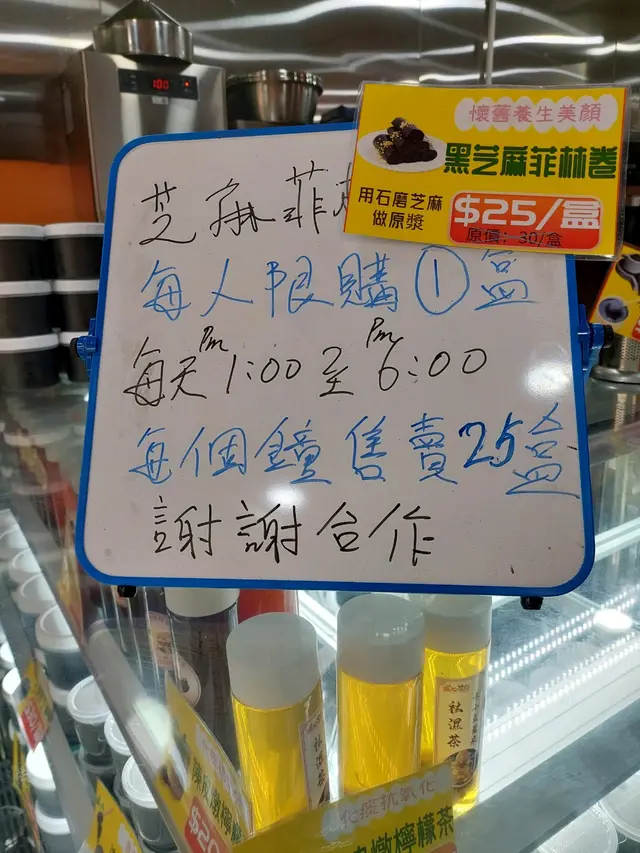 100
懷舊養生美顏
黑芝麻菲林卷
用石磨芝麻
做原漿
$25/盒
原價：30/盒
芝麻菲
每人限購①盒
每天Pm1:00至Pm6:00
每個鐘售賣25盒
謝謝合作
祛濕茶
祛濕茶
化痰抗氧化
燉檸檬茶
燉檸檬
$20